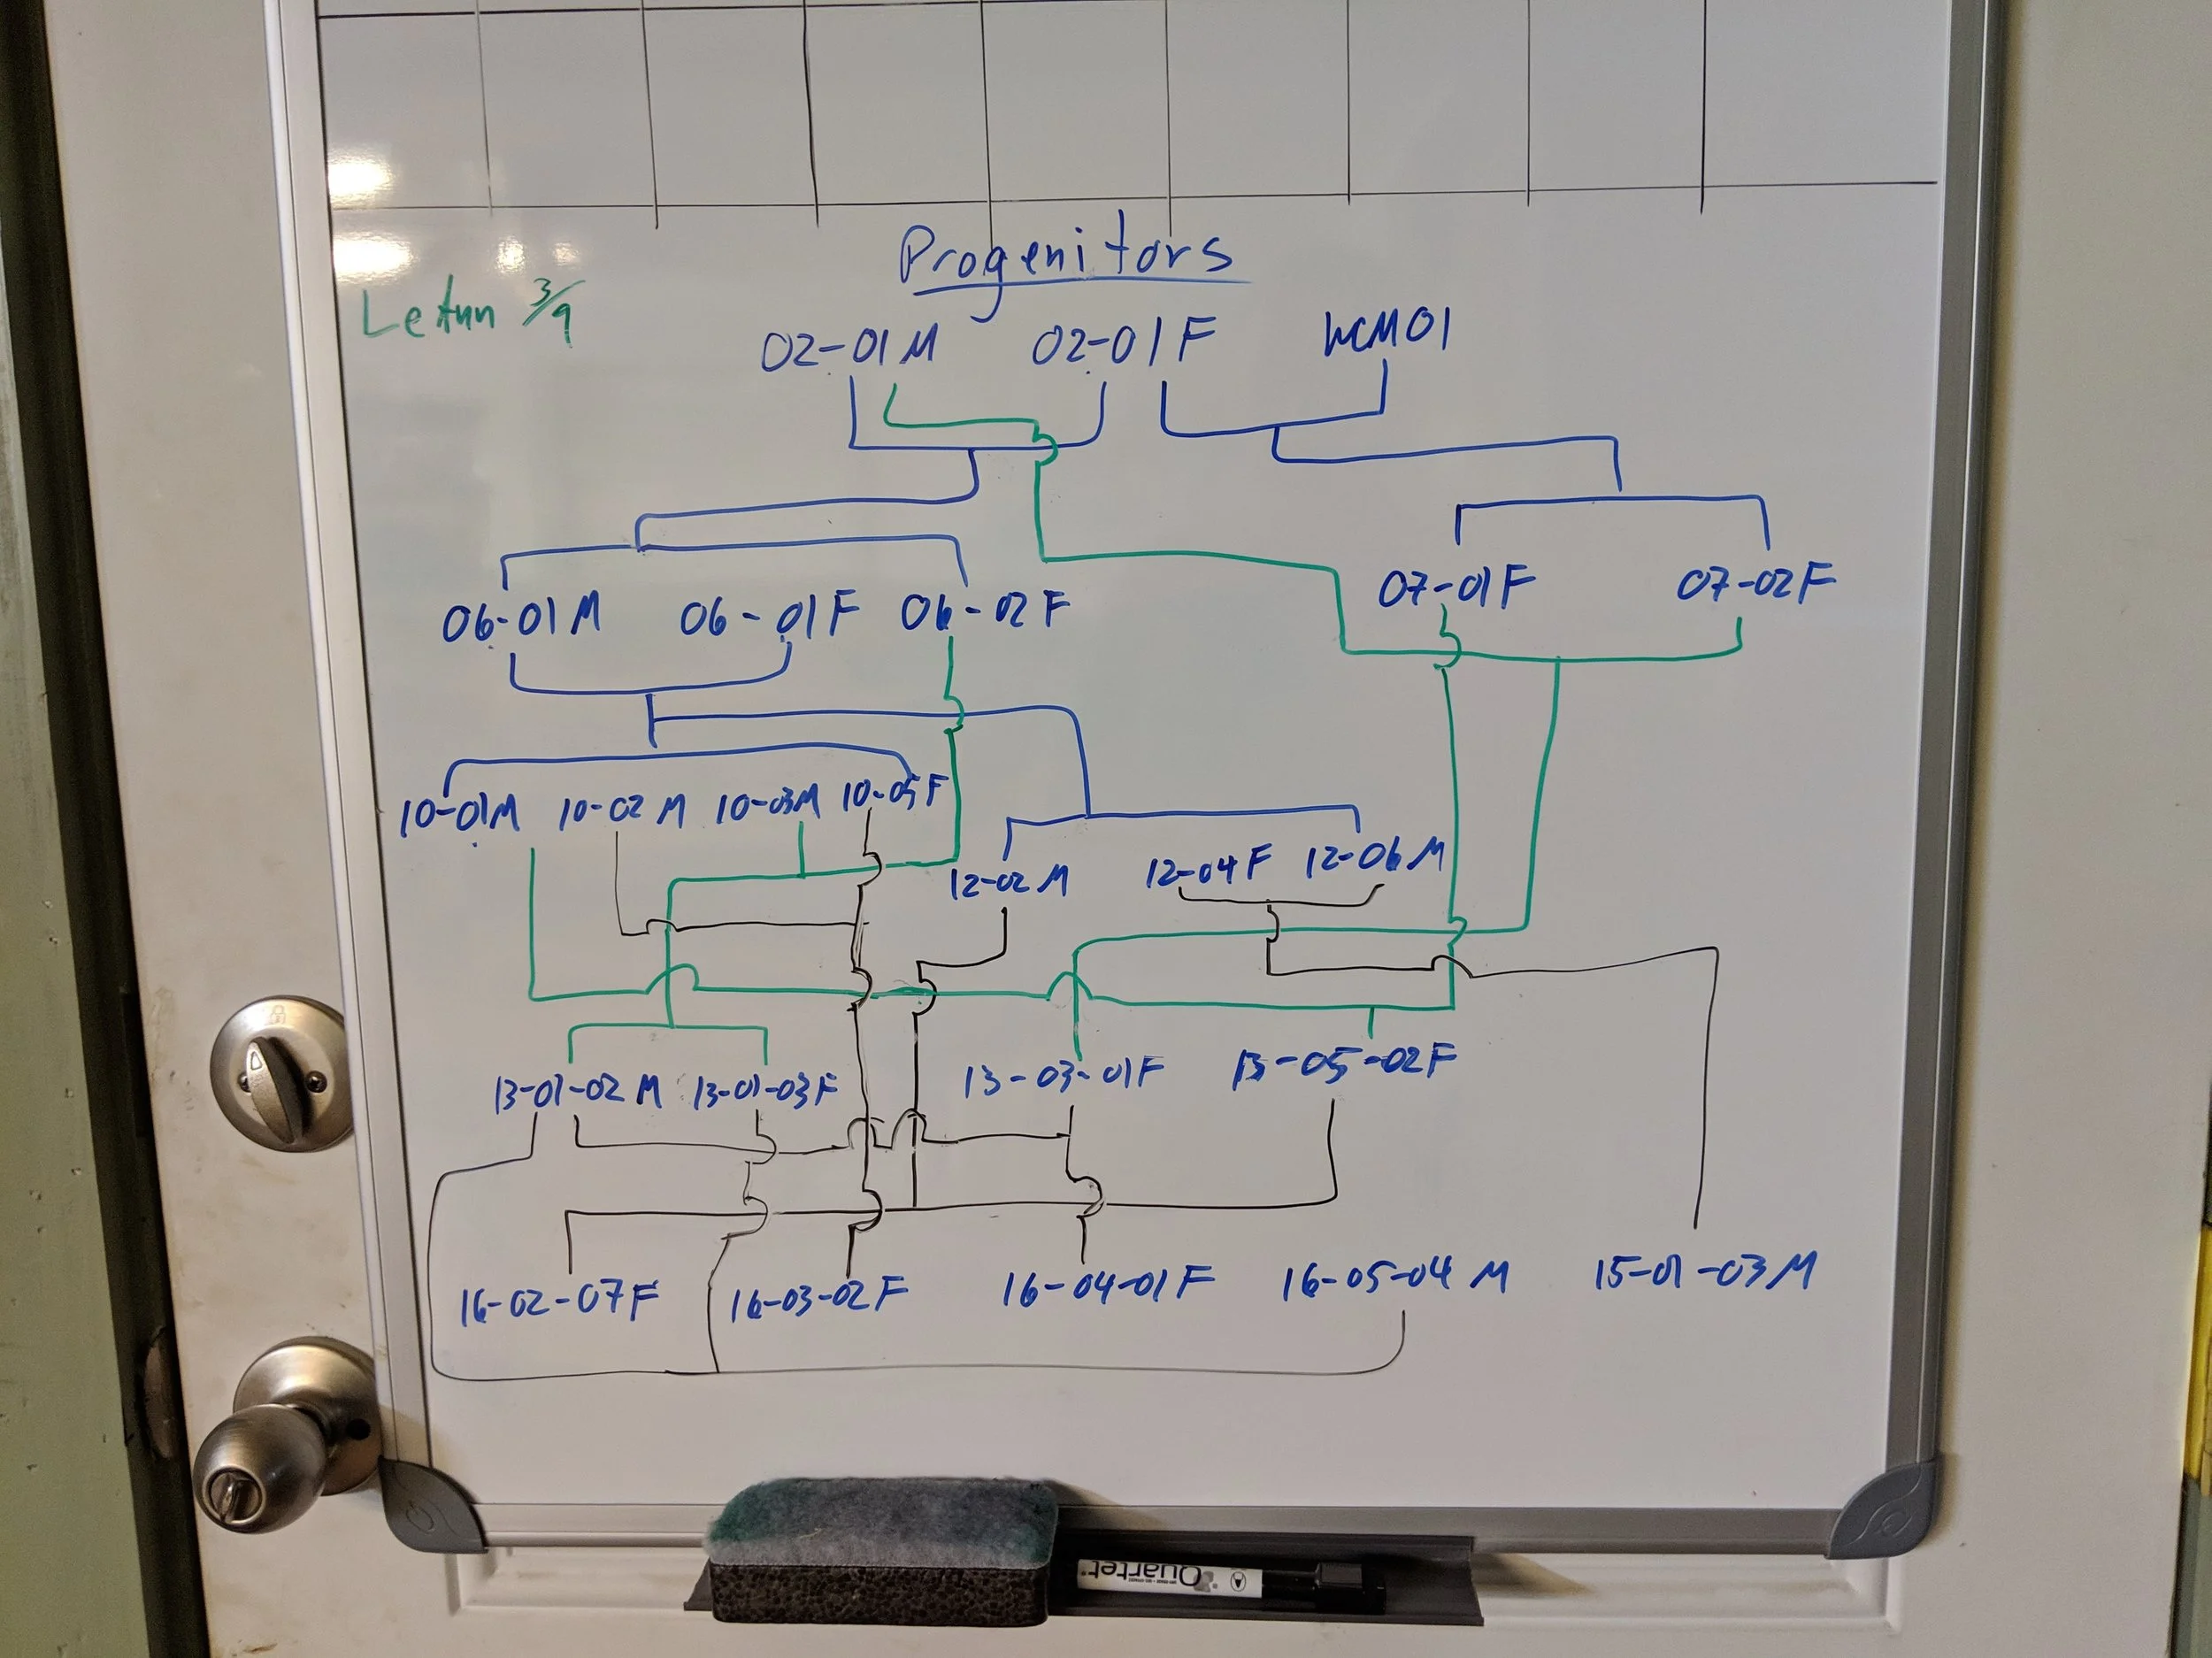 Progenitors
3/9
02-01 M 02-01 F WCM01
06-01 M 06-01 F 06-02 F 07-01 F 07-02 F
10-01 M 10-02 M 10-03 M 10-05 F
12-02 M 12-04 F 12-06 M
13-01-02 M 13-01-03 F 13-03-01 F 13-05-02 F
16-02-07 F 16-03-02 F 16-04-01 F 16-05-04 M 15-01-03 M
Quartet